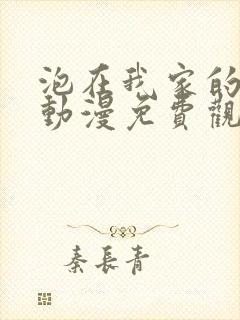 泡在我家的
動漫免費觀
秦長青